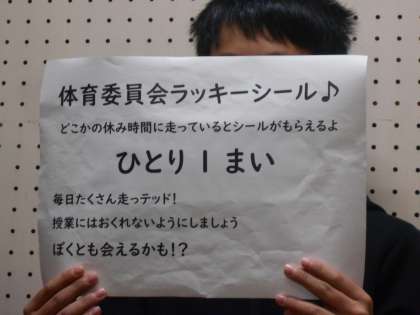 体育委員会ラッキーシール♪
どこかの休み時間に走っているとシールがもらえるよ
ひとり1まい
毎日たくさん走っテッド!
授業にはおくれないようにしましょう
ぼくとも会えるかも!?